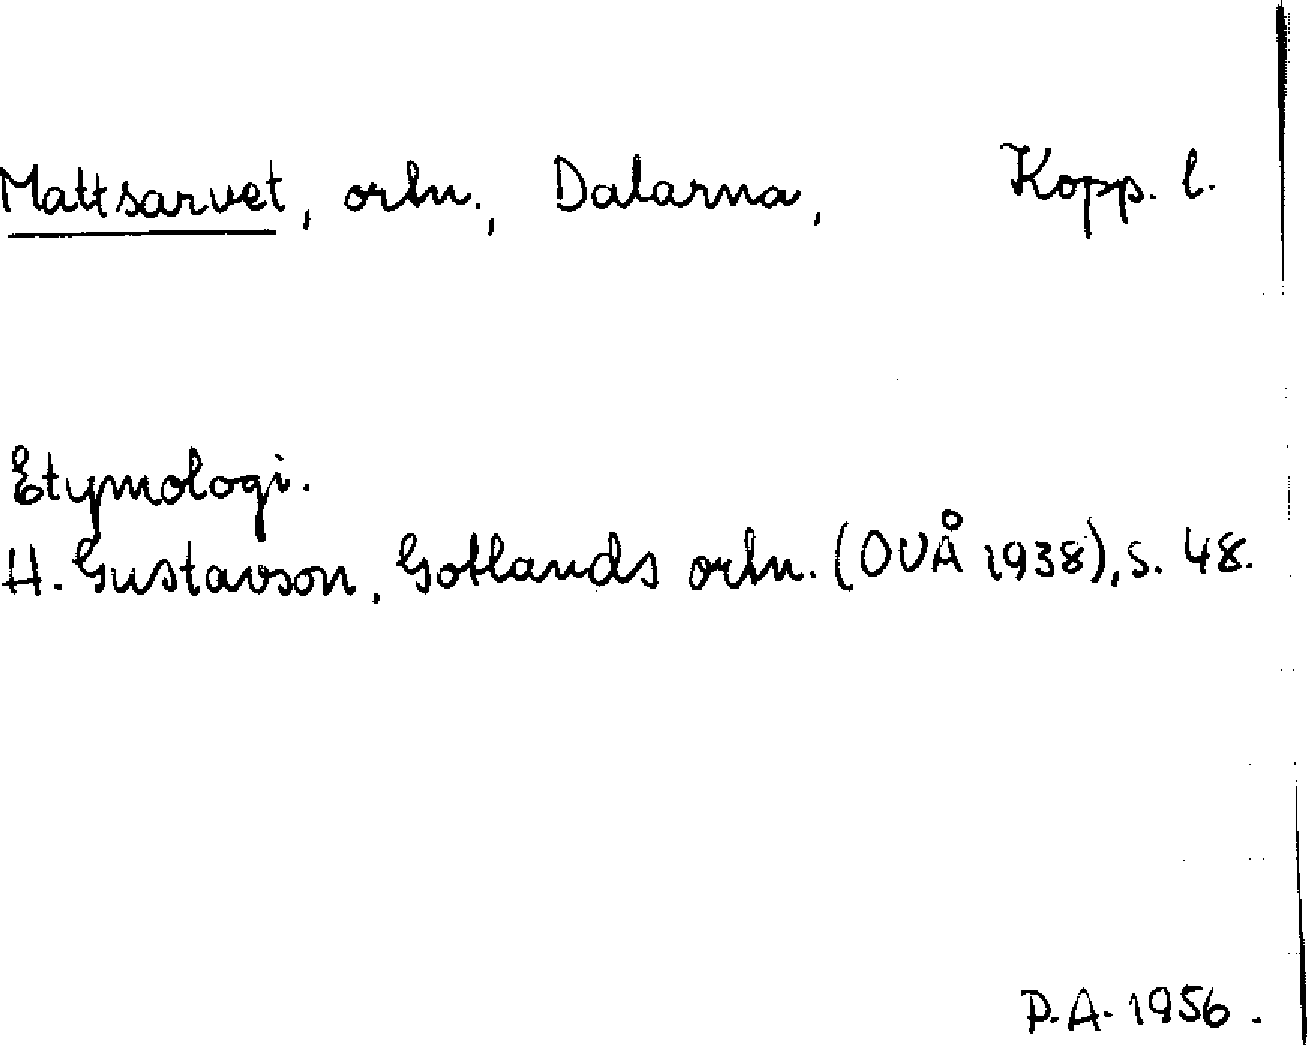 Mattsarvet, ortn., Dalarna, Kopp. l.
Etymologi.
H. Gustavson, Gotlands ortn. (OUÅ 1938), s. 48.
P.A. 1956.